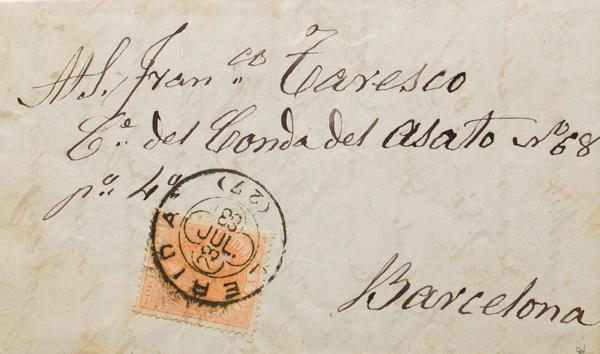 M. S. Fran.co Taresco
C.e del Conda del Asalto Nº 68
p.o 4.º
LERIDA
(27)
28
JUL
83
Barcelona